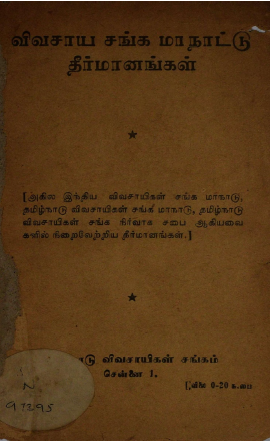 விவசாய சங்க மாநாட்டு
தீர்மானங்கள்
[அகில இந்திய விவசாயிகள் சங்க மாநாடு,
தமிழ்நாடு விவசாயிகள் சங்க மாநாடு, தமிழ்நாடு
விவசாயிகள் சங்க நிர்வாக சபை ஆகியவை
களில் நிறைவேற்றிய தீர்மானங்கள்.]
நாடு விவசாயிகள் சங்கம்
சென்னை 1.
[விலை 0-20 ந.பை
N
91295